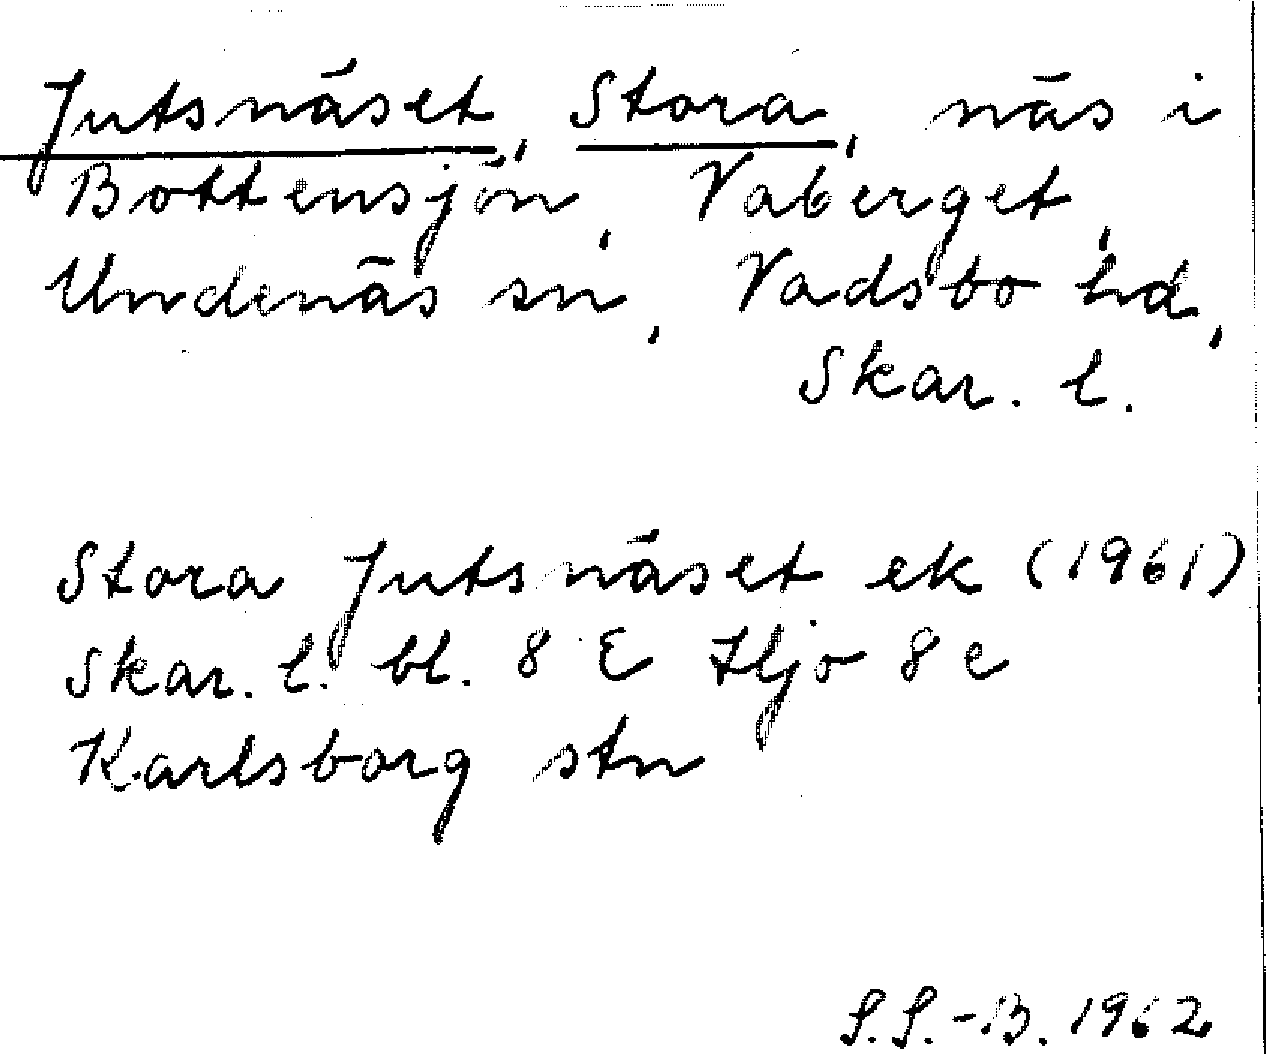 Jutsnäset, Stora, näs i
Bottensjön, Vaberget,
Undenäs sn, Vadsbo hd,
Skar. l.
Stora Jutsnäset ek (1961)
Skar. l. bl. 8 E Hjo 8 c
Karlsborg stn
S.S.-B. 1962